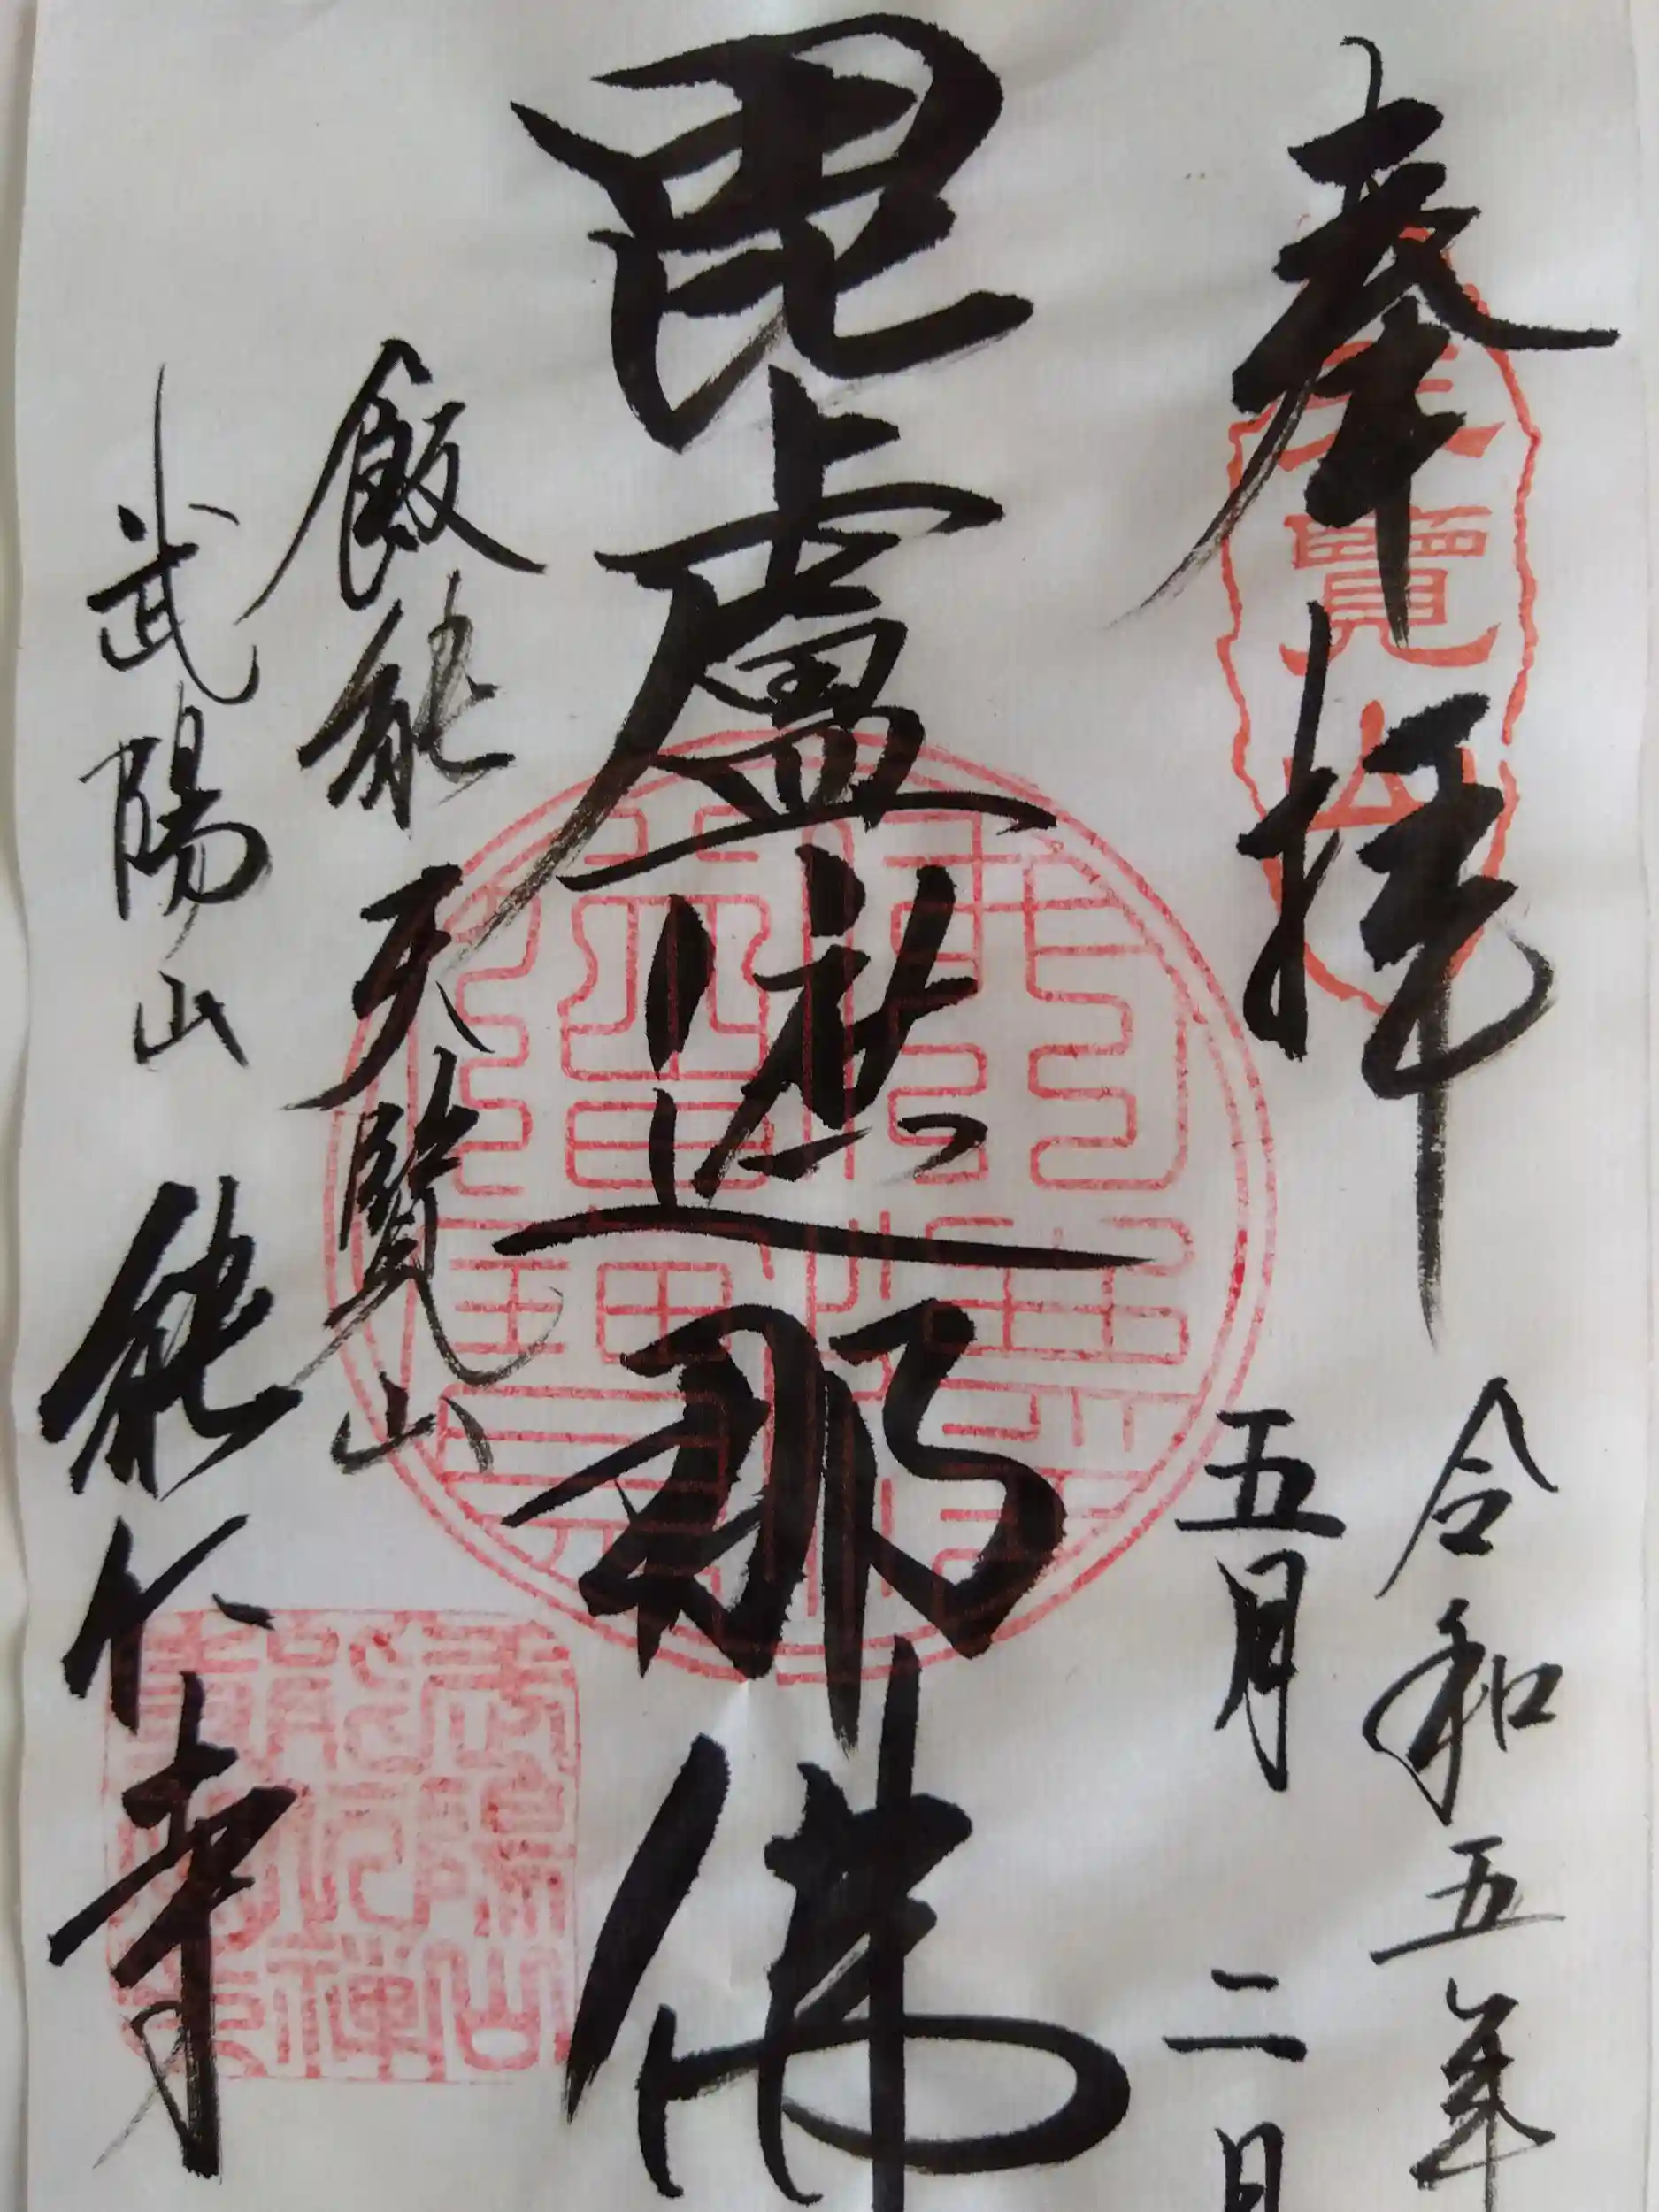 奉拝
令和五年
五月二日
毘盧遮那佛
飯能天覧山
武陽山能仁寺
覽山